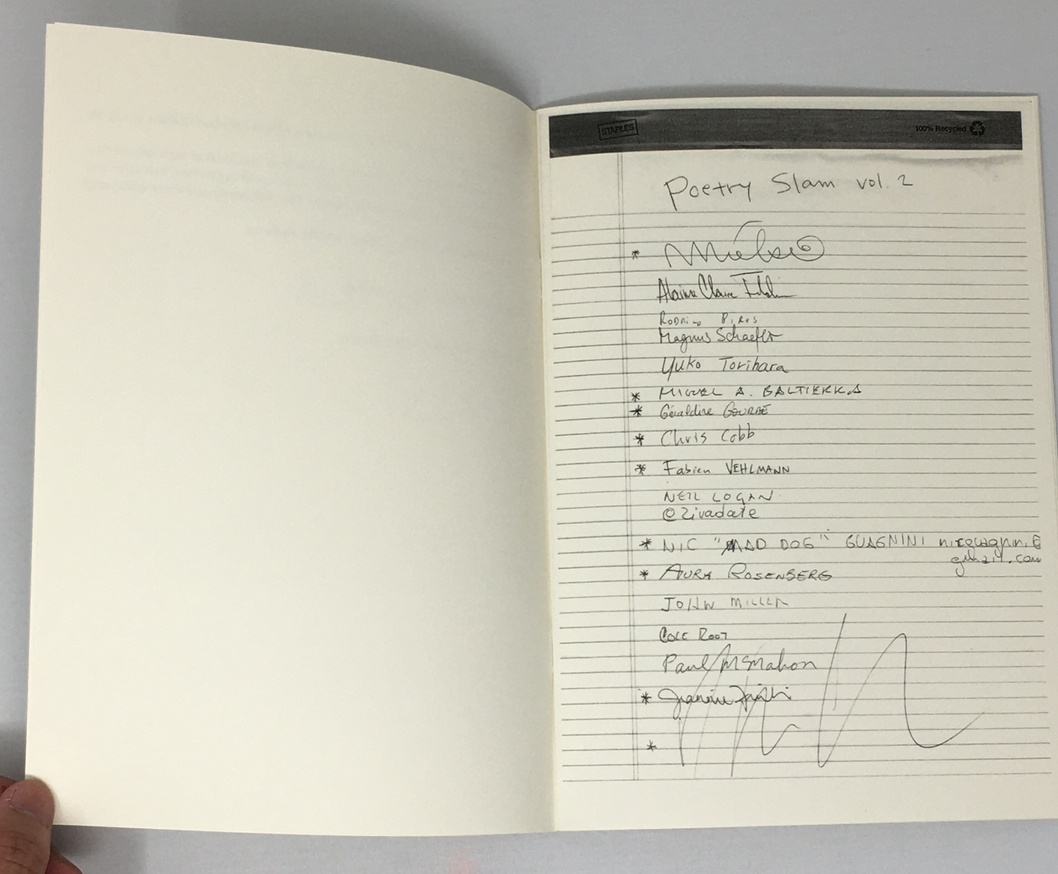 STAPLES 100% Recycled
Poetry Slam vol. 2
*
Alaina Claire
Magnus Schaefer
Yuko Torihara
* MIGUEL A. BALTIERRA
* Géraldine GOURBE
* Chris Cobb
* Fabien VEHLMANN
NEIL LOGAN
@Zivadate
* NIC "MAD DOG" GUAGNINI
gmail.com
* AURA ROSENBERG
JOHN MILLER
COLE ROOT
Paul McMahon
*
*